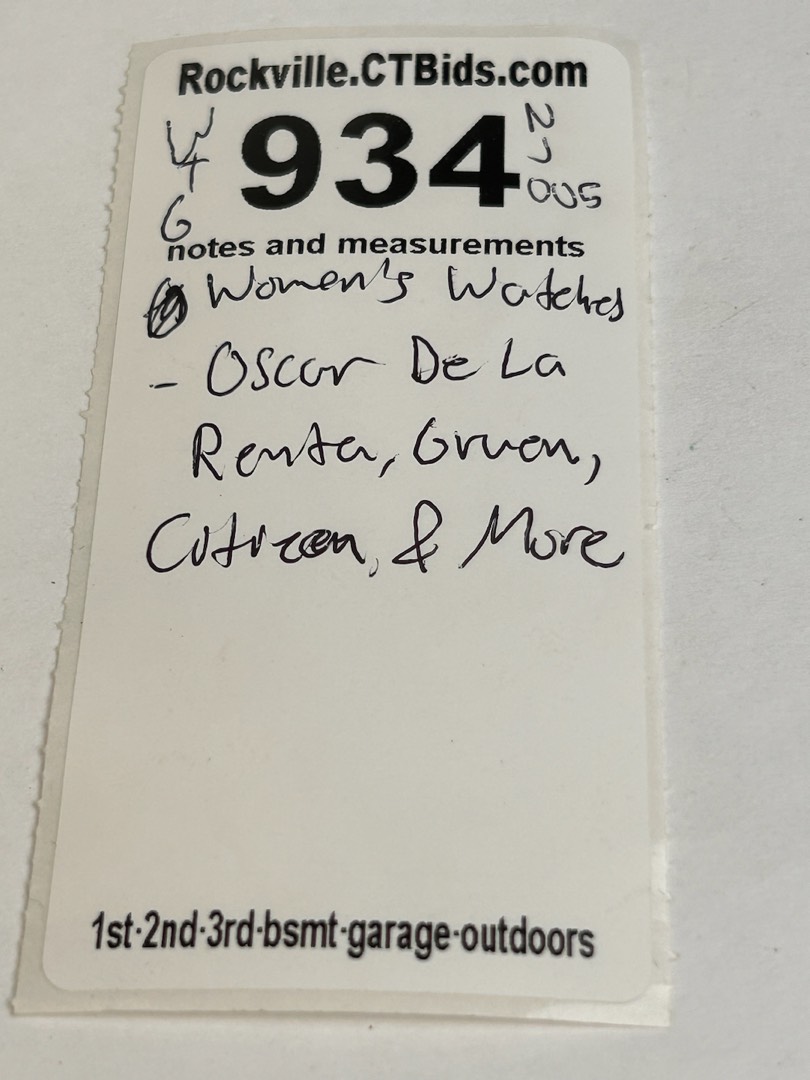 Rockville.CTBids.com
934
005
notes and measurements
Women's Watches
- Oscar De La
Renta, Gruen,
Citizen, & More
1st·2nd·3rd·bsmt·garage·outdoors